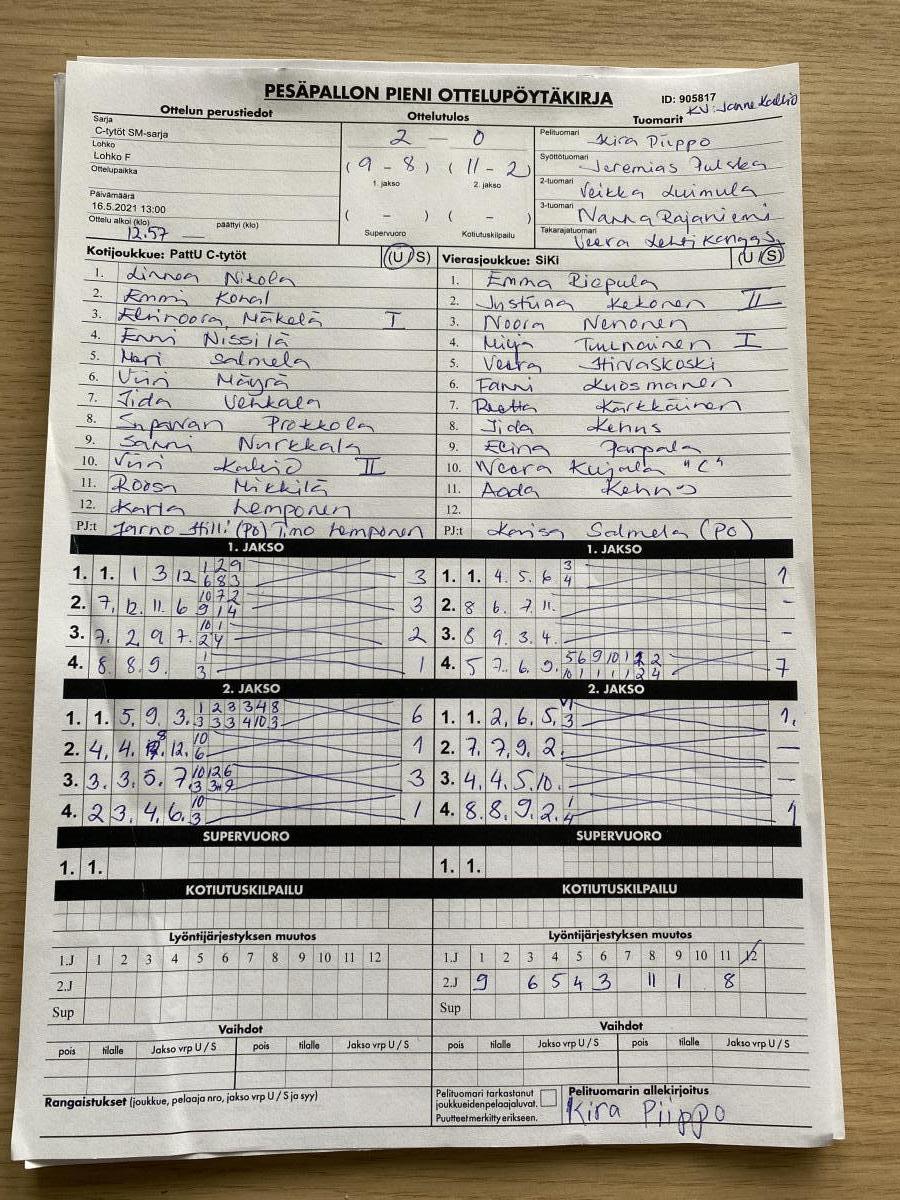 PESÄPALLON PIENI OTTELUPÖYTÄKIRJA
ID: 905817
KV: Janne Kallio
Ottelun perustiedot
Sarja
C-tytöt SM-sarja
Lohko
Lohko F
Ottelupaikka
Päivämäärä
16.5.2021 13:00
Ottelu alkoi (klo) päättyi (klo)
12.57
Ottelutulos
2 – 0
(9 - 8) (11 - 2)
1. jakso 2. jakso
( - ) ( - )
Supervuoro Kotiutuskilpailu
Tuomarit
Pelituomari Kira Piippo
Syöttötuomari Jeremias Pulska
2-tuomari Veikka Luimula
3-tuomari Nanna Rajaniemi
Takarajatuomari Veera Lehtikangas
Kotijoukkue: PattU C-tytöt (U/S)
1. Linnea Nikola
2. Emmi
3. Ellinoora Mäkelä I
4. Enni Nissilä
5. Mari Salmela
6. Viivi Mäyrä
7. Iida Vehkala
8. Prokkola
9. Sanni Nurkkala
10. Viivi Kallio II
11. Roosa Mikkilä
12. Karla Lemponen
PJ:t Jarno Hilli (PO) Timo Lemponen
Vierasjoukkue: SiKi (U/S)
1. Emma Riepula
2. Justiina Kekonen II
3. Noora Nenonen
4. Milja Tuunainen I
5. Veera Hirvaskoski
6. Fanni Kuosmanen
7. Reetta Kärkkäinen
8. Iida Kehus
9. Elina Parpala
10. Weera Kujala "C"
11. Aada Kehus
12.
PJ:t Larisa Salmela (PO)
1. JAKSO
1. 1. 1 3 12 1 2 9 3
6 8 3
2. 7. 12. 11. 6 10 7 2 3
9 1 4
3. 7. 2 9 7. 10 1 2
2 4
4. 8. 8. 9. 1 1
3
1. JAKSO
1. 1. 4. 5. 6 3 1
4
2. 8 6. 7. 11. -
3. 8 9. 3. 4. -
4. 5 7. 6. 9. 5 6 9 10 1 2 2 7
10 1 1 1 1 2 4
2. JAKSO
1. 1. 5. 9. 3. 1 2 3 3 4 8 6
3 3 3 4 10 3
2. 4. 4. 8 12. 10 1
6
3. 3. 3. 5. 7 10 12 6 3
3 3 9
4. 2 3. 4. 6. 10 1
3
2. JAKSO
1. 1. 2, 6. 5. 3 1.
2. 7. 7. 9. 2. —
3. 4. 4. 5. 10. —
4. 8. 8. 9. 2. 1 1
4
SUPERVUORO
1. 1.
SUPERVUORO
1. 1.
KOTIUTUSKILPAILU
KOTIUTUSKILPAILU
Lyöntijärjestyksen muutos
1.J 1 2 3 4 5 6 7 8 9 10 11 12
2.J
Sup
Lyöntijärjestyksen muutos
1.J 1 2 3 4 5 6 7 8 9 10 11 12
2.J 9 6 5 4 3 11 1 8
Sup
Vaihdot
pois tilalle Jakso vrp U / S pois tilalle Jakso vrp U / S
Vaihdot
pois tilalle Jakso vrp U / S pois tilalle Jakso vrp U / S
Rangaistukset (joukkue, pelaaja nro, jakso vrp U / S ja syy)
Pelituomari tarkastanut
joukkueiden pelaajaluvat.
Puutteet merkitty erikseen.
Pelituomarin allekirjoitus
Kira Piippo